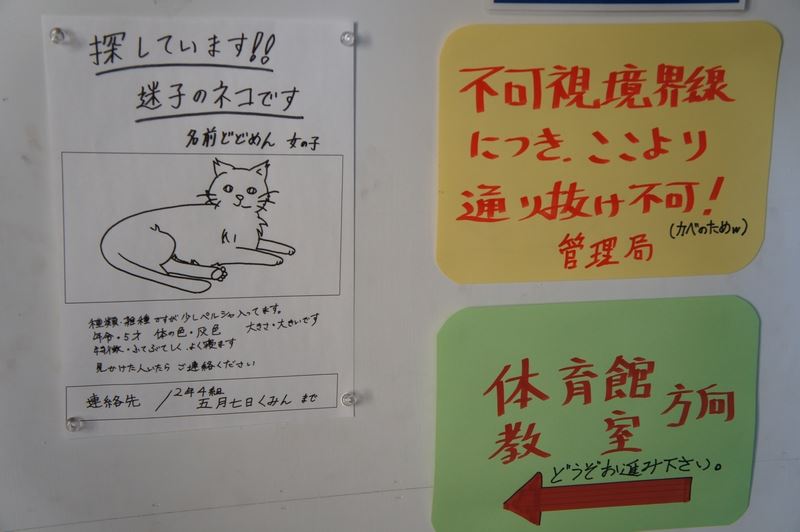 探しています!!
迷子のネコです
名前どどめん 女の子
種類・雑種ですが少しペルシャ入ってます。
年令・5才 体の色・灰色 大きさ・大きいです
特徴・ふてぶてしく、よく寝ます
見かけた人いたら ご連絡ください
連絡先/2年4組
五月七日くみん まで
不可視境界線
につき、ここより
通り抜け不可!
(カベのためw)
管理局
体育館
教室 方向
どうぞお進み下さい。